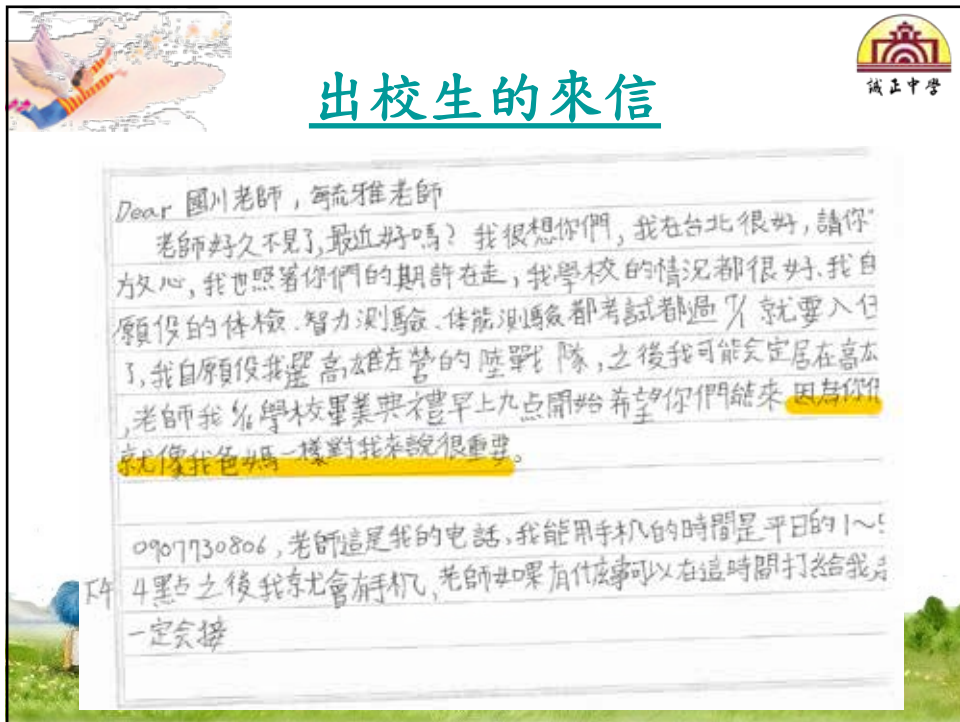 誠正中學
出校生的來信
Dear 國川老師,毓雅老師
老師好久不見了,最近好嗎?我很想你們,我在台北很好,請你
放心,我也照著你們的期許在走,我學校的情況都很好、我自
願役的体檢、智力測驗、体能測驗都考試都過 7/1 就要入伍
了,我自願役我選高雄左營的陸戰隊,之後我可能会定居在高雄
,老師我 學校畢業典禮早上九点開始希望你們能來 因為你們
就像我爸媽一樣對我來說很重要。
0907730806,老師這是我的电話,我能用手机的時間是平日的1~5
下午 4點之後我就會有手机,老師如果有什麼事可以在這時間打給我
一定会接